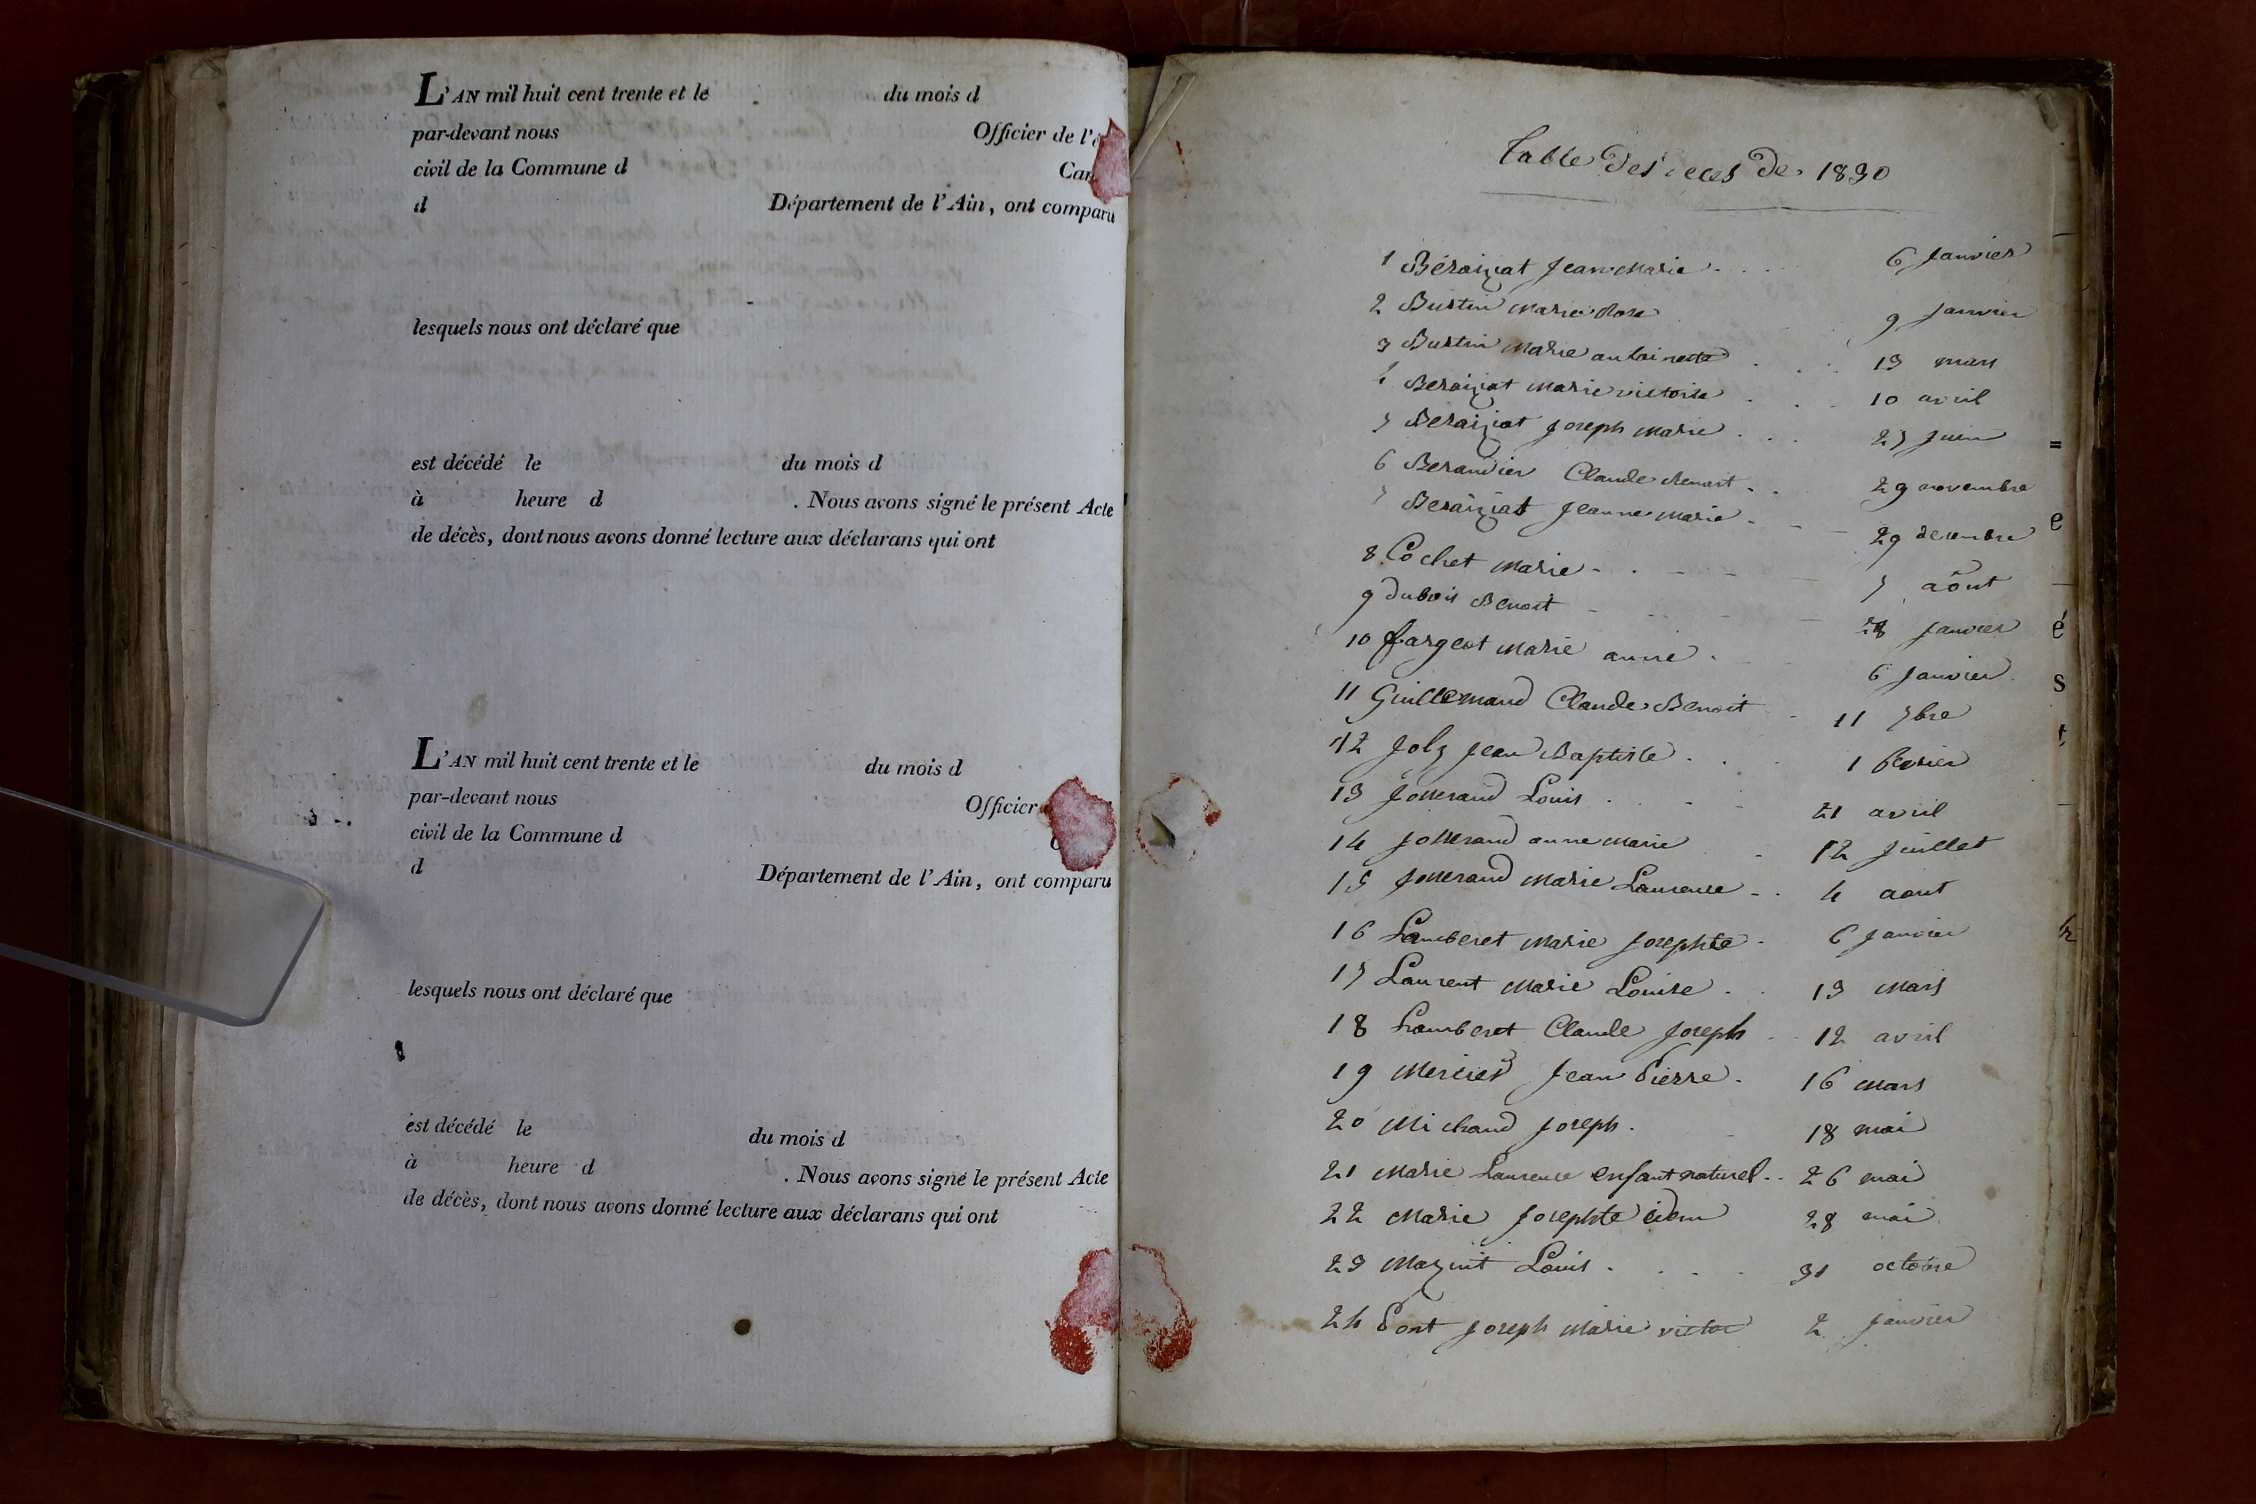 L'AN mil huit cent trente et le du mois d
par-devant nous Officier de l'é
civil de la Commune d Can
d Département de l'Ain, ont comparu
lesquels nous ont déclaré que
est décédé le du mois d
à heure d . Nous avons signé le présent Acte
de décès, dont nous avons donné lecture aux déclarans qui ont
L'AN mil huit cent trente et le du mois d
par-devant nous Officier
civil de la Commune d
d Département de l'Ain, ont comparu
lesquels nous ont déclaré que
est décédé le du mois d
à heure d . Nous avons signé le présent Acte
de décès, dont nous avons donné lecture aux déclarans qui ont
Table des deces de 1830
1 Béraiziat Jean Marie 6 Janvier
2 Bustin Marie Rose 9 janvier
3 Bustin Marie antoinette 13 mars
4 Beraiziat Marie victoire 10 avril
5 Beraiziat Joseph Marie 25 juin
6 Beraudier Claude Benoit 29 novembre
7 Beraiziat Jeanne Marie 29 decembre
8 Cochet Marie 7 aôut
9 dubois Benoit 28 janvier
10 fargeot Marie anne 6 janvier
11 Guillemaud Claude Benoit 11 7bre
12 Joly Jean Baptiste 1 fevrier
13 Josserand Louis 21 avril
14 Josserand anne Marie 12 juillet
15 Josserand Marie Laurence 4 aout
16 Lamberet Marie Josephte 6 janvier
17 Laurent Marie Louise 13 Mars
18 Lamberet Claude Joseph 12 avril
19 Mercier Jean Pierre 16 Mars
20 Michaud Joseph 18 mai
21 Marie Laurence enfant naturel 26 mai
22 Marie Josephte idem 28 mai
23 Mazuit Louis 31 octobre
24 Pont Joseph Marie victor 2 janvier